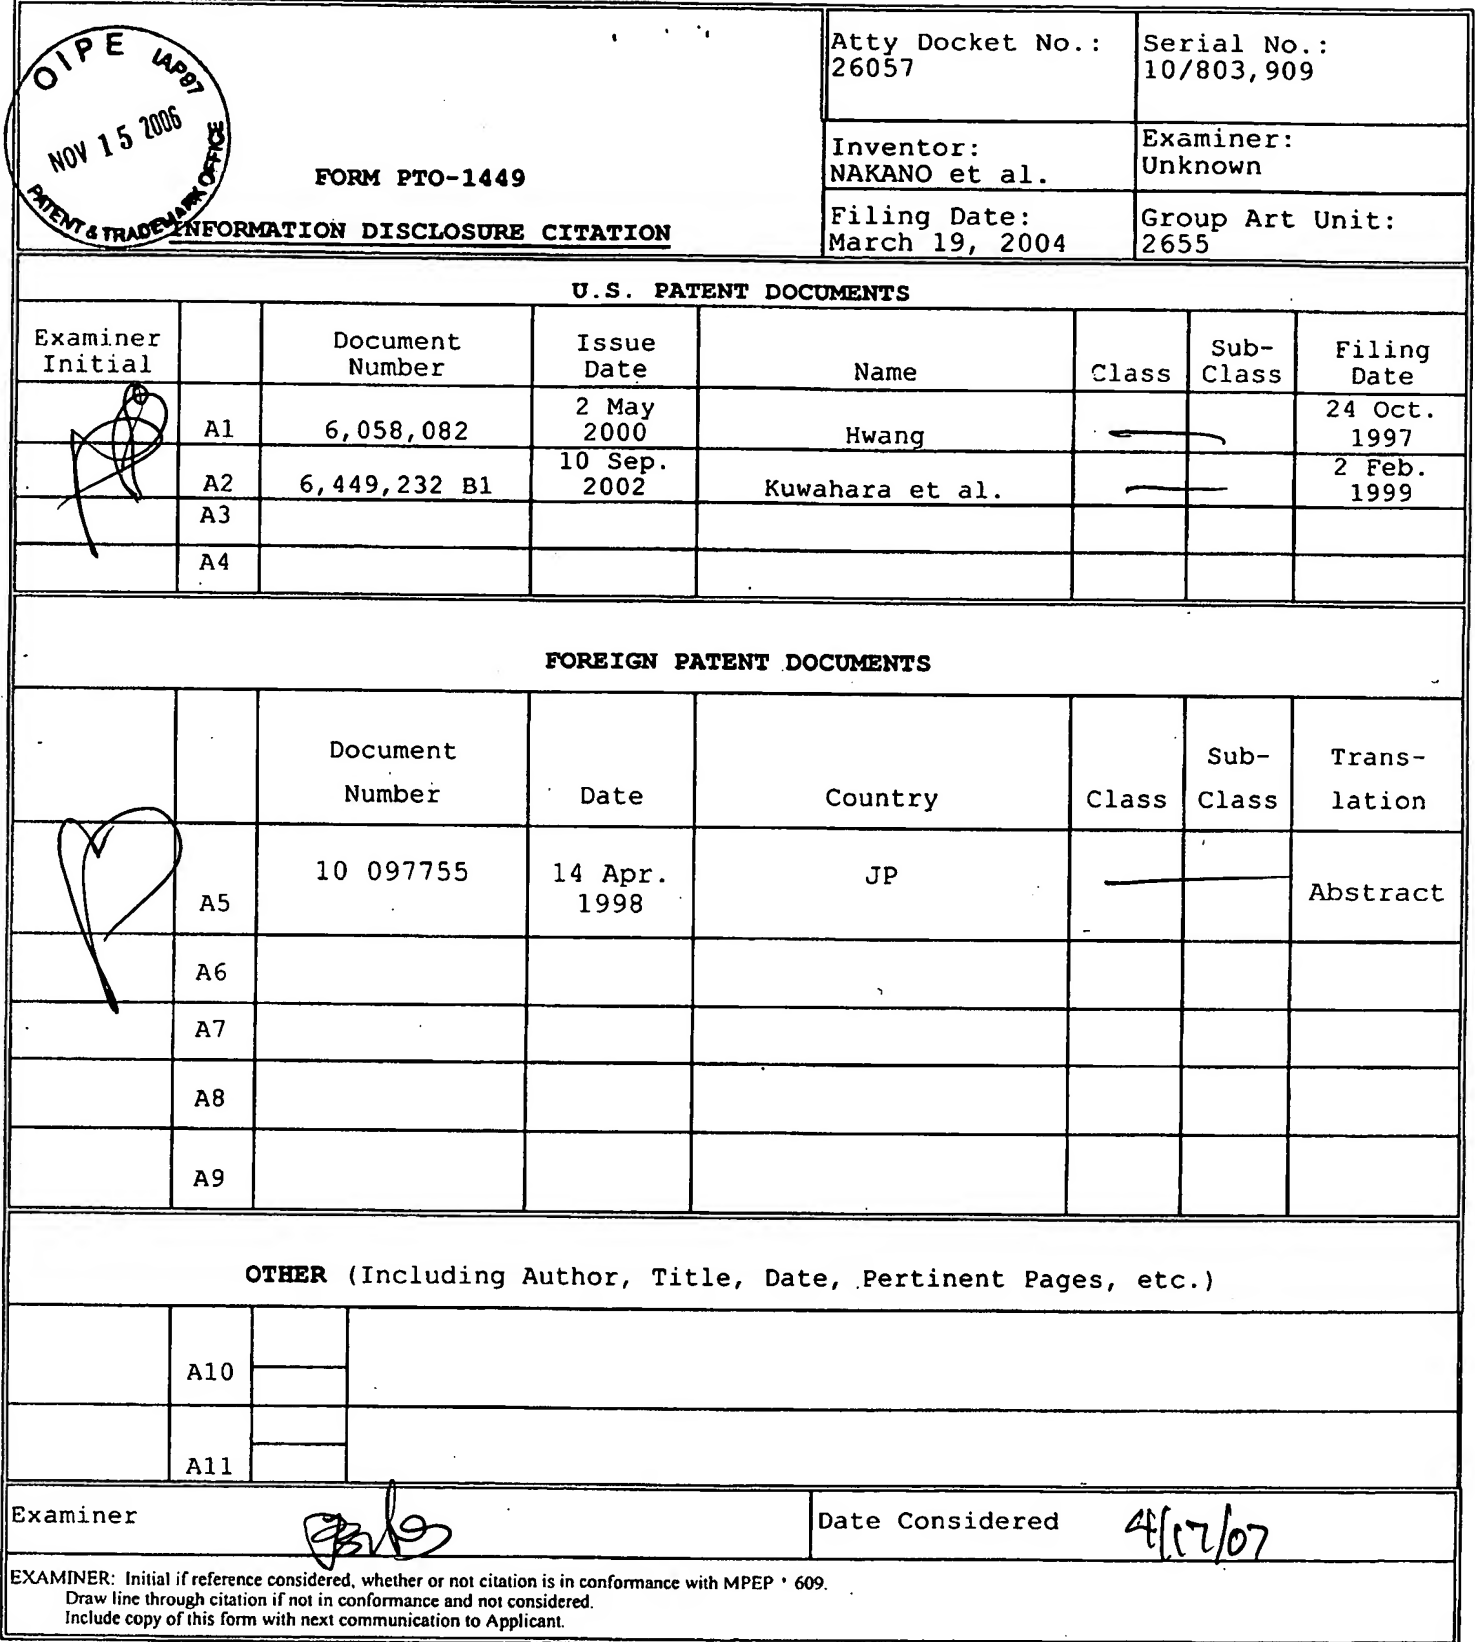 OIPE IAP87
NOV 15 2006
PATENT & TRADEMARK OFFICE
FORM PTO-1449
INFORMATION DISCLOSURE CITATION
Atty Docket No.:
26057
Serial No.:
10/803,909
Inventor:
NAKANO et al.
Examiner:
Unknown
Filing Date:
March 19, 2004
Group Art Unit:
2655
U.S. PATENT DOCUMENTS
Examiner
Initial
Document
Number
Issue
Date
Name
Class
Sub-
Class
Filing
Date
A1
6,058,082
2 May
2000
Hwang
24 Oct.
1997
A2
6,449,232 B1
10 Sep.
2002
Kuwahara et al.
2 Feb.
1999
A3
A4
FOREIGN PATENT DOCUMENTS
Document
Number
Date
Country
Class
Sub-
Class
Trans-
lation
A5
10 097755
14 Apr.
1998
JP
Abstract
A6
A7
A8
A9
OTHER (Including Author, Title, Date, Pertinent Pages, etc.)
A10
A11
Examiner
Date Considered 4/17/07
EXAMINER: Initial if reference considered, whether or not citation is in conformance with MPEP ' 609.
Draw line through citation if not in conformance and not considered.
Include copy of this form with next communication to Applicant.